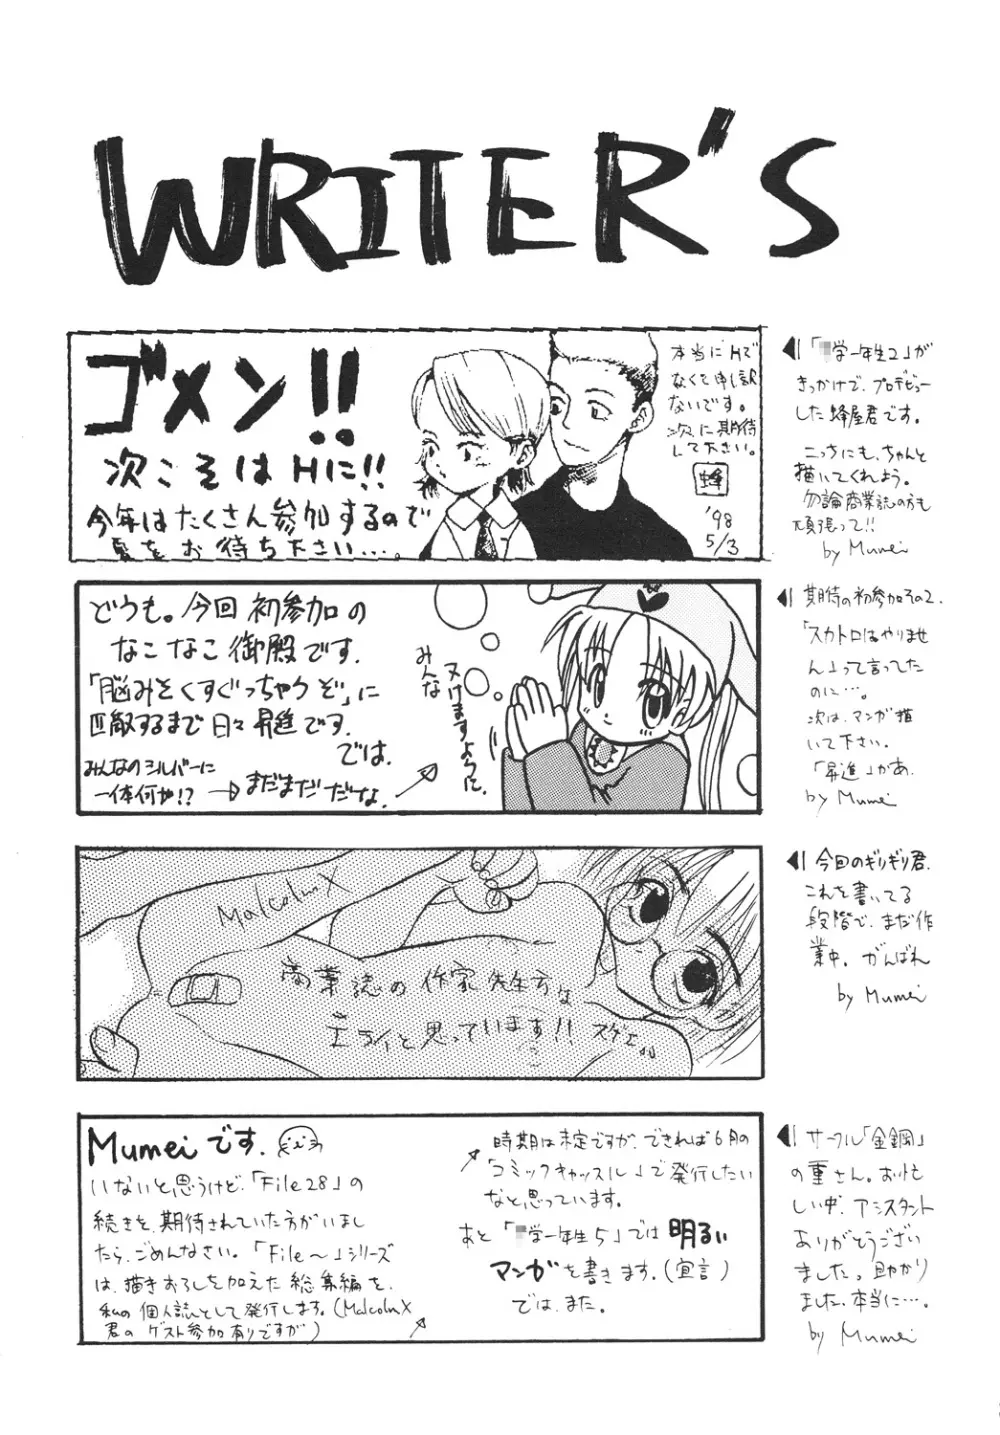 WRITER'S
ゴメン!!
次こそはHに!!
今年はたくさん参加するので
夏をお待ち下さい…。
本当にHで
なくて申し訳
ないです。
次に期待
して下さい。
蜂
'98
5/3
学一年生2」が
きっかけで、プロデビュー
した蜂屋君です。
こっちにも、ちゃんと
描いてくれよう。
勿論商業誌の方も
頑張って!!
by Mumei
どうも。今回初参加の
なこなこ御殿です。
「脳みそくすぐっちゃうぞ」に
匹敵するまで日々昇進です。
では。
みんなのシルバーに
一体何が!?
→まだまだだな。
みんな
ヌけますように。
期待の初参加その2.
「スカトロはやりませ
ん」って言ってした
のに…。
次は、マンガ描
いて下さい。
「昇進」かあ.
by Mumei
MalcolmX
商業誌の作家先生方な
エライと思っています!!スゲェ。。
今回のギリギリ君.
これを書いてる
段階で、まだ作
業中。がんばれ
by Mumei
Mumeiです.
いないと思うけど、「File28」の
続きを、期待されていた方がいまし
たら、ごめんなさい。「File〜」シリーズ
は、描きおろしを加えた総集編を、
私の個人誌として発行します。(MalcolmX
君のゲスト参加有りですが)
時期は未定ですが、できれば6月の
「コミックキャッスル」で発行したい
なと思っています。
あと「学一年生5」では明るい
マンガを書きます。(宣言)
では、また。
サークル「金鋼」
の重さん。お忙
しい中、アシスタント
ありがとうござい
ました。助かり
ました、本当に…。
by Mumei